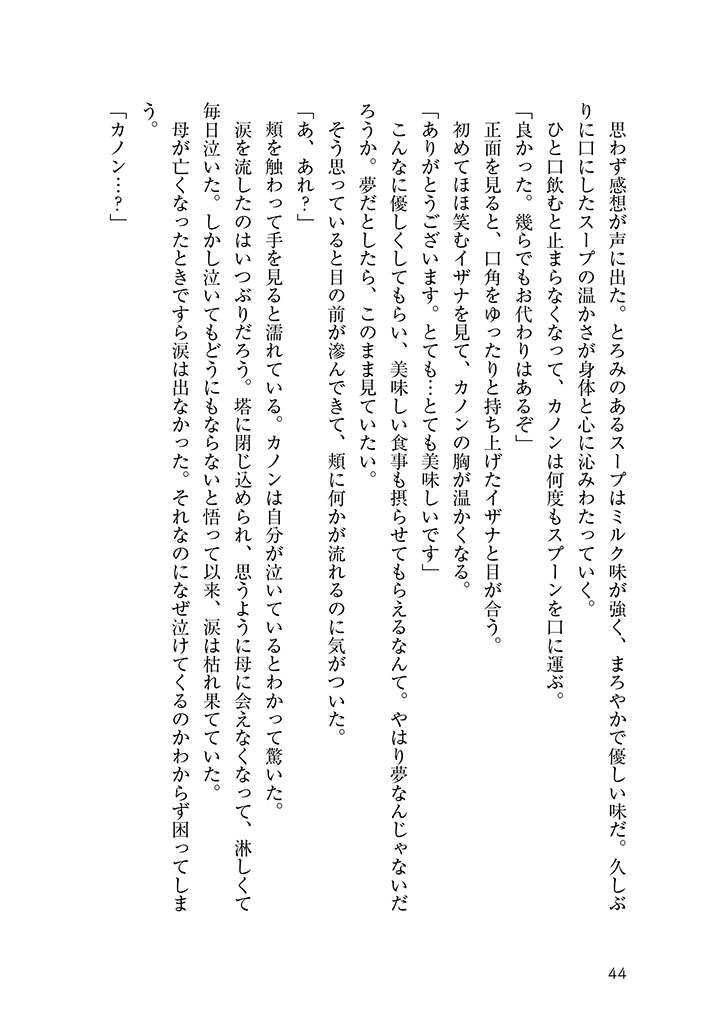 思わず感想が声に出た。とろみのあるスープはミルク味が強く、まろやかで優しい味だ。久しぶ
りに口にしたスープの温かさが身体と心に沁みわたっていく。
　ひと口飲むと止まらなくなって、カノンは何度もスプーンを口に運ぶ。
「良かった。幾らでもお代わりはあるぞ」
　正面を見ると、口角をゆったりと持ち上げたイザナと目が合う。
　初めてほほ笑むイザナを見て、カノンの胸が温かくなる。
「ありがとうございます。とても…とても美味しいです」
　こんなに優しくしてもらい、美味しい食事も摂らせてもらえるなんて。やはり夢なんじゃないだ
ろうか。夢だとしたら、このまま見ていたい。
　そう思っていると目の前が滲んできて、頬に何かが流れるのに気がついた。
「あ、あれ？」
　頬を触わって手を見ると濡れている。カノンは自分が泣いているとわかって驚いた。
　涙を流したのはいつぶりだろう。塔に閉じ込められ、思うように母に会えなくなって、淋しくて
毎日泣いた。しかし泣いてもどうにもならないと悟って以来、涙は枯れ果てていた。
　母が亡くなったときですら涙は出なかった。それなのになぜ泣けてくるのかわからず困ってしま
う。
「カノン…？」
44